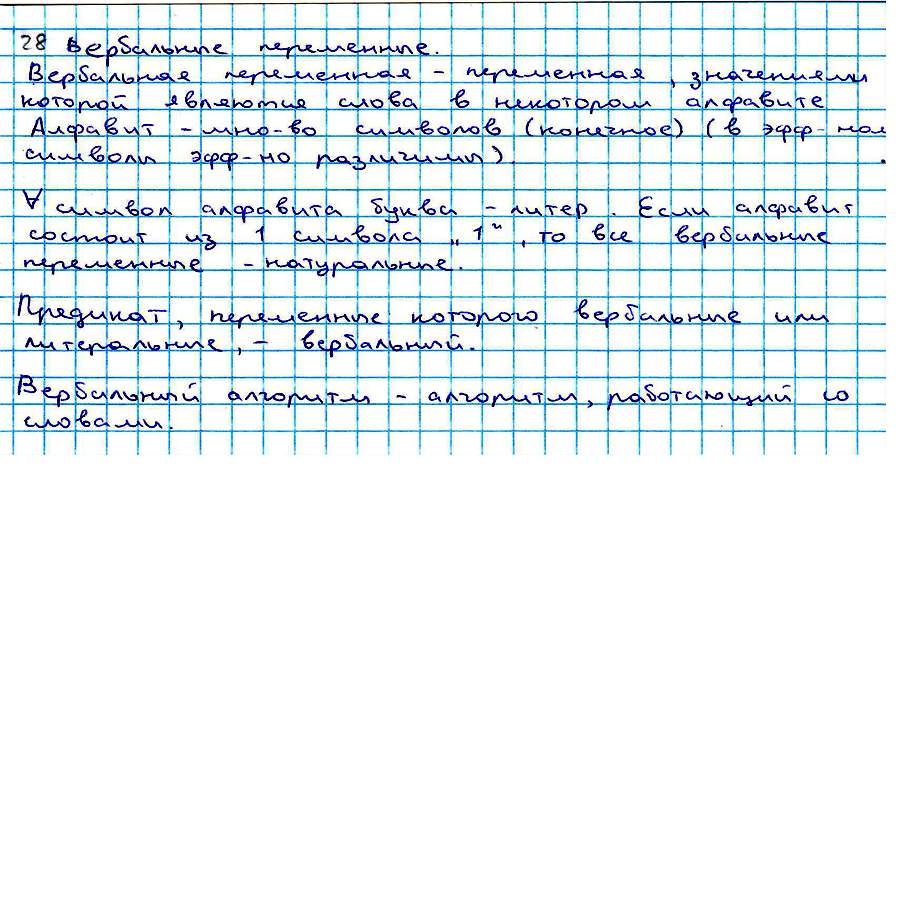 28 Вербальные переменные.
Вербальная переменная - переменная, значениями
которой являются слова в некотором алфавите
Алфавит - мно-во символов (конечное) (в эфф-ном
символы эфф-но различимы).
∀ символ алфавита буква - литер. Если алфавит
состоит из 1 символа „1", то все вербальные
переменные - натуральные.
Предикат, переменные которого вербальные или
литеральные, - вербальный.
Вербальный алгоритм - алгоритм, работающий со
словами.